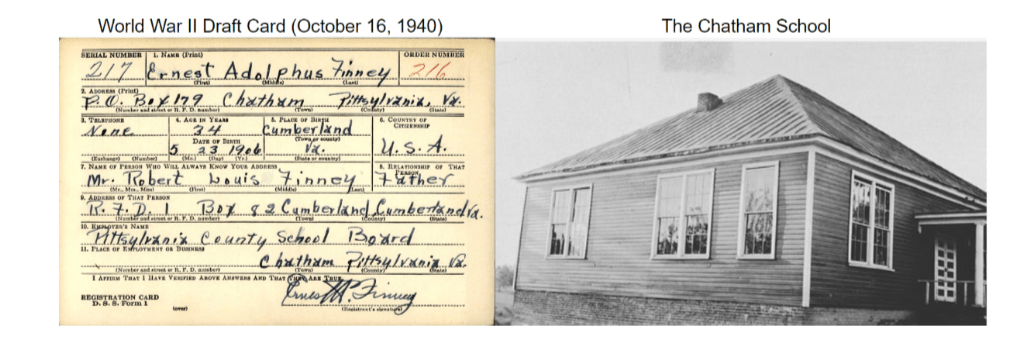 World War II Draft Card (October 16, 1940)
The Chatham School
SERIAL NUMBER 1. NAME (Print) ORDER NUMBER
217 Ernest Adolphus Finney 216
(First) (Middle) (Last)
2. ADDRESS (Print)
P.O. Box 179 Chatham Pittsylvania, Va.
(Number and street or R. F. D. number) (Town) (County) (State)
3. TELEPHONE 4. AGE IN YEARS 5. PLACE OF BIRTH 6. COUNTRY OF CITIZENSHIP
None 34 Cumberland
(Town or county)
DATE OF BIRTH
5 23 1906 Va. U.S.A.
(Exchange) (Number) (Mo.) (Day) (Yr.) (State or country)
7. NAME OF PERSON WHO WILL ALWAYS KNOW YOUR ADDRESS 8. RELATIONSHIP OF THAT PERSON
Mr. Robert Louis Finney Father
(Mr., Mrs., Miss) (First) (Middle) (Last)
9. ADDRESS OF THAT PERSON
R.F.D. 1 Box 82 Cumberland Cumberland Va.
(Number and street or R. F. D. number) (Town) (County) (State)
10. EMPLOYER'S NAME
Pittsylvania County School Board
11. PLACE OF EMPLOYMENT OR BUSINESS
Chatham Pittsylvania Va.
(Number and street or R. F. D. number) (Town) (County) (State)
I AFFIRM THAT I HAVE VERIFIED ABOVE ANSWERS AND THAT THEY ARE TRUE.
REGISTRATION CARD
D. S. S. Form 1
Ernest A. Finney
(over) (Registrant's signature)